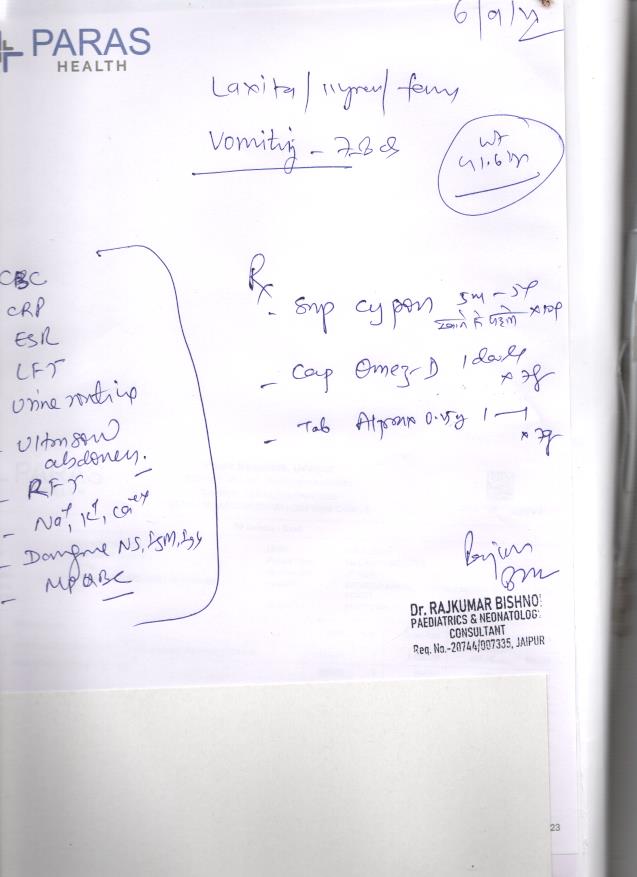 PARAS
HEALTH
Laxita / 11yrs /
Vomiting -
wt
41.6
CBC
CRP
ESR
LFT
Urine routine
Ultrasound
abdomen.
RFT
Na+, K+, Ca++
Dengue NS, IgM, IgG
MP QBC
Rx
- Syp Cypon 5ml -
खाने से पहले
- Cap Omez-D 1 daily
- Tab 1
Dr. RAJKUMAR BISHNOI
PAEDIATRICS & NEONATOLOG
CONSULTANT
Reg. No.-20744/007335, JAIPUR
23